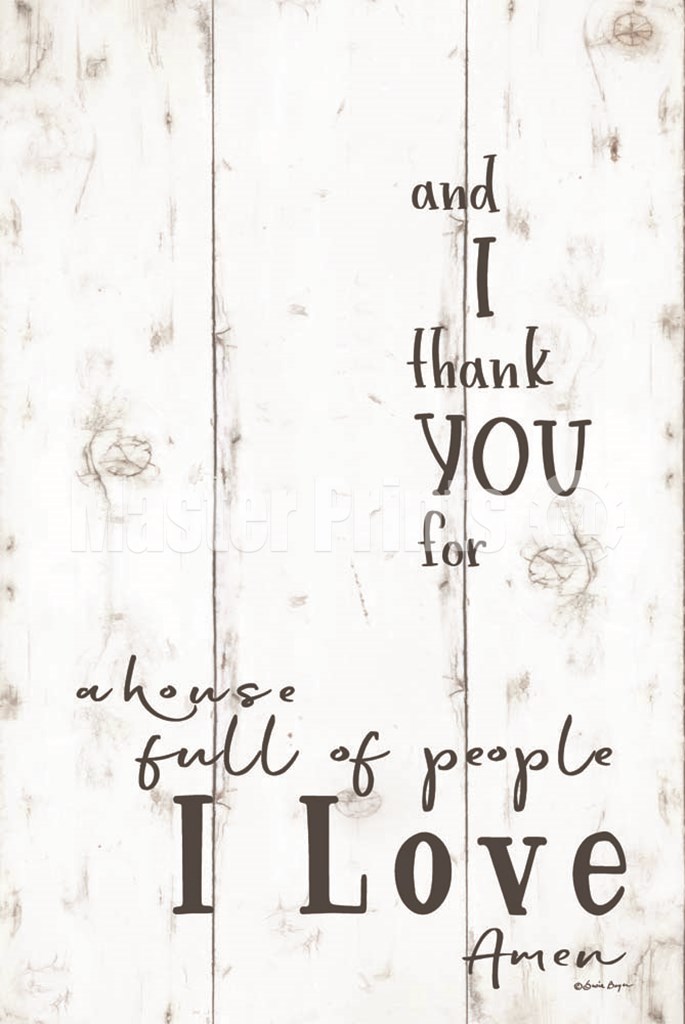 and
I
thank
YOU
for
a house
full of people
I Love
Amen
Master Prints